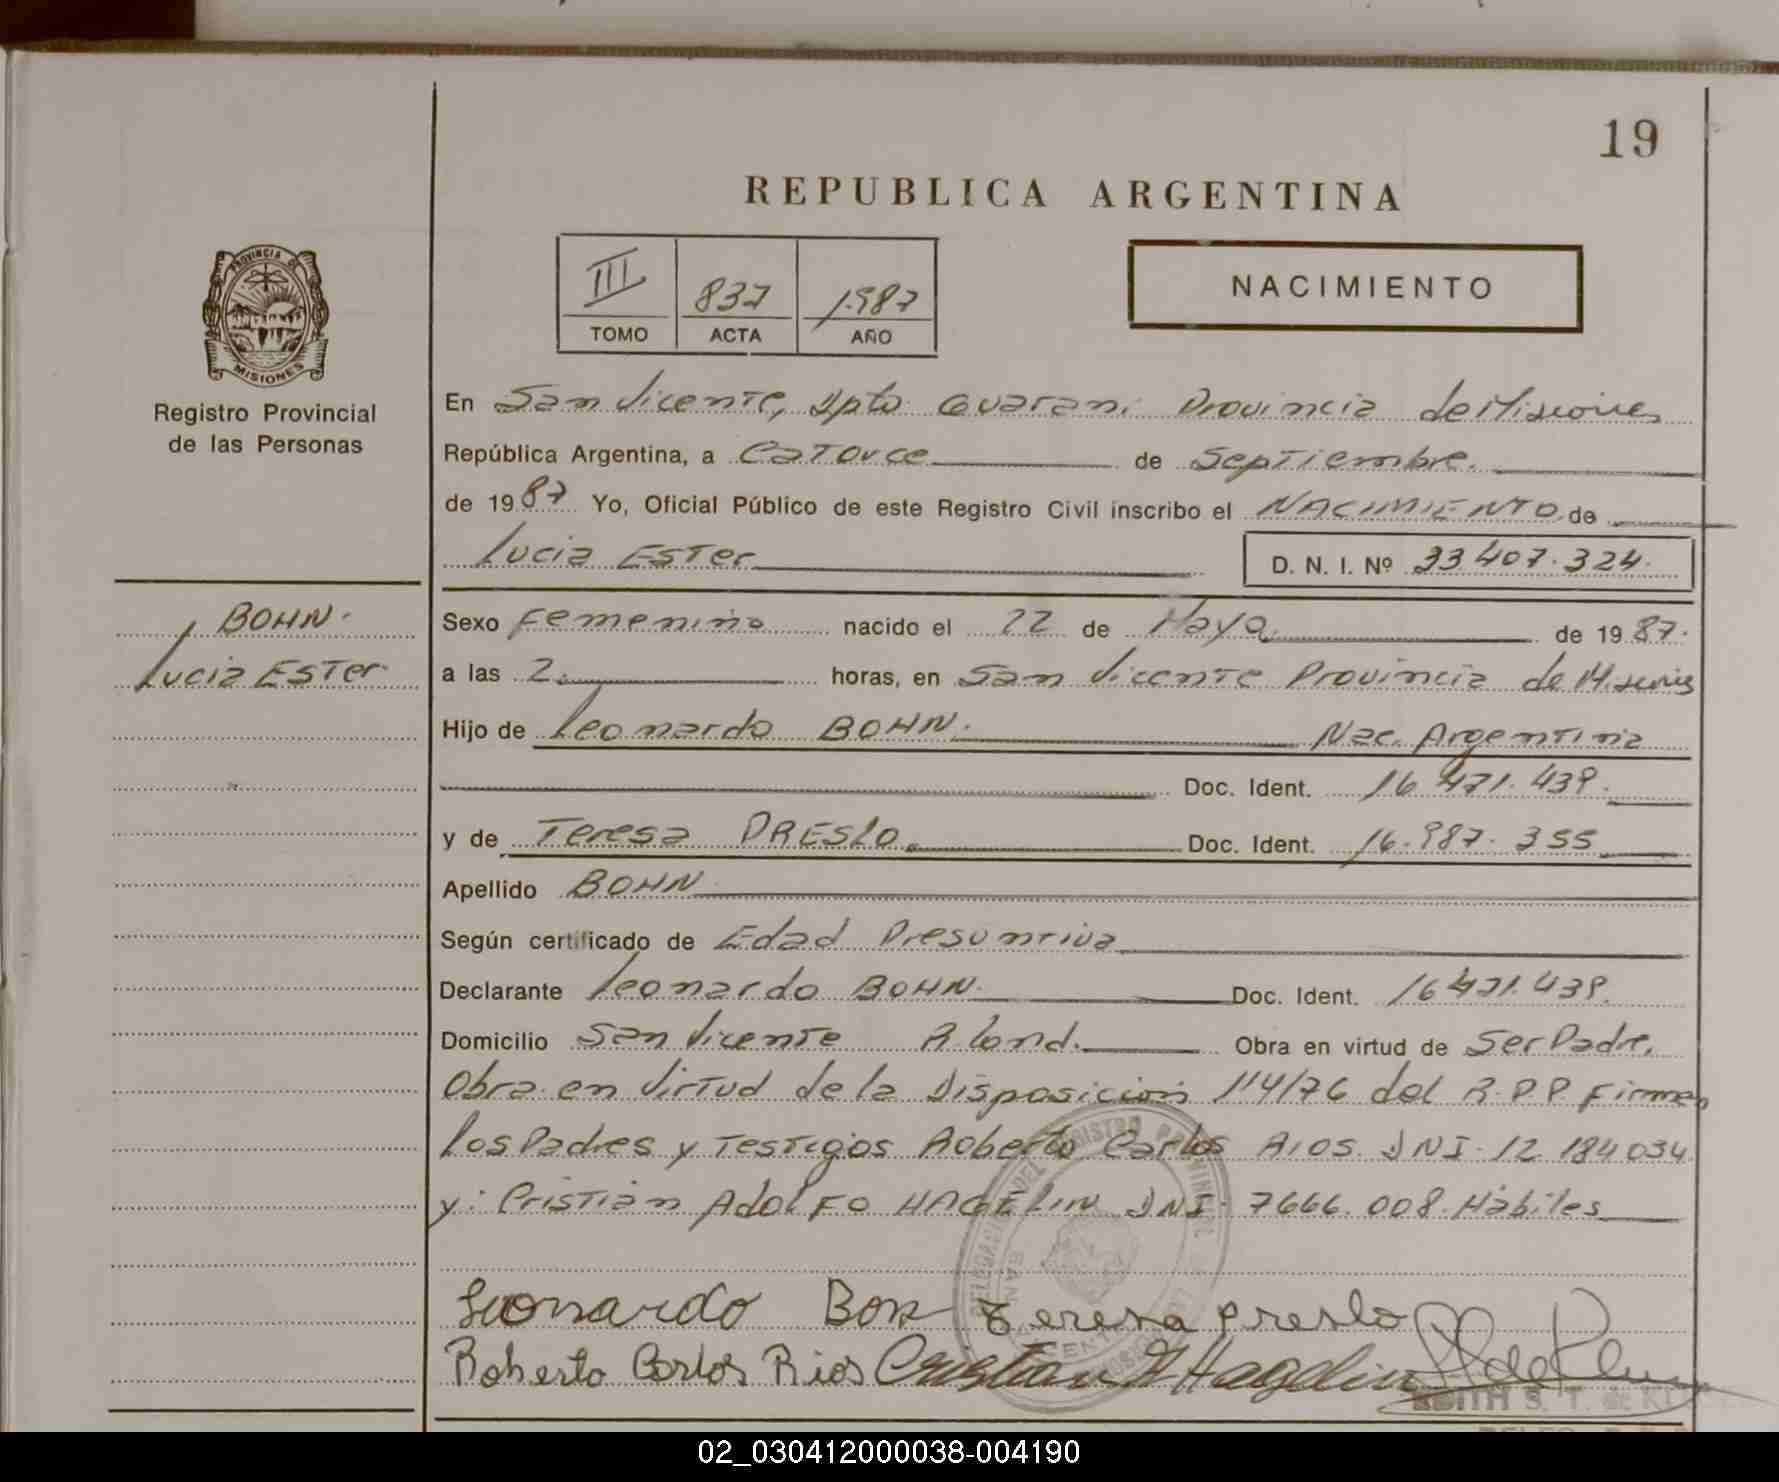 19
REPUBLICA ARGENTINA
PROVINCIA DE
MISIONES
Registro Provincial
de las Personas
III 837 1987
TOMO ACTA AÑO
NACIMIENTO
En San Vicente, Dpto Guarani Provincia de Misiones
República Argentina, a Catorce de Septiembre.
de 1987 Yo, Oficial Público de este Registro Civil inscribo el NACIMIENTO de
Lucia Ester D. N. I. Nº 33.407.324.
BOHN.
Lucia Ester
Sexo Femenino nacido el 22 de Mayo de 1987.
a las 2. horas, en San Vicente Provincia de Misiones
Hijo de Leonardo BOHN. Nac. Argentina
Doc. Ident. 16.471.439.
y de Teresa PRESLO. Doc. Ident. 16.987.355
Apellido BOHN
Según certificado de Edad Presuntiva
Declarante Leonardo BOHN. Doc. Ident. 16.471.439.
Domicilio San Vicente R. Cond. Obra en virtud de Ser Padre.
Obra en Virtud de la Disposición 114/76 del R.P.P. Firman
los Padres y Testigos Roberto Carlos Rios DNI. 12.184.034
y: Cristian Adolfo HAGELIN DNI. 7666.008. Hábiles
Leonardo Bon Teresa Preslo
Roberto Carlos Rios Cristian A Hagelin
EDITH S. T. de
02_030412000038-004190